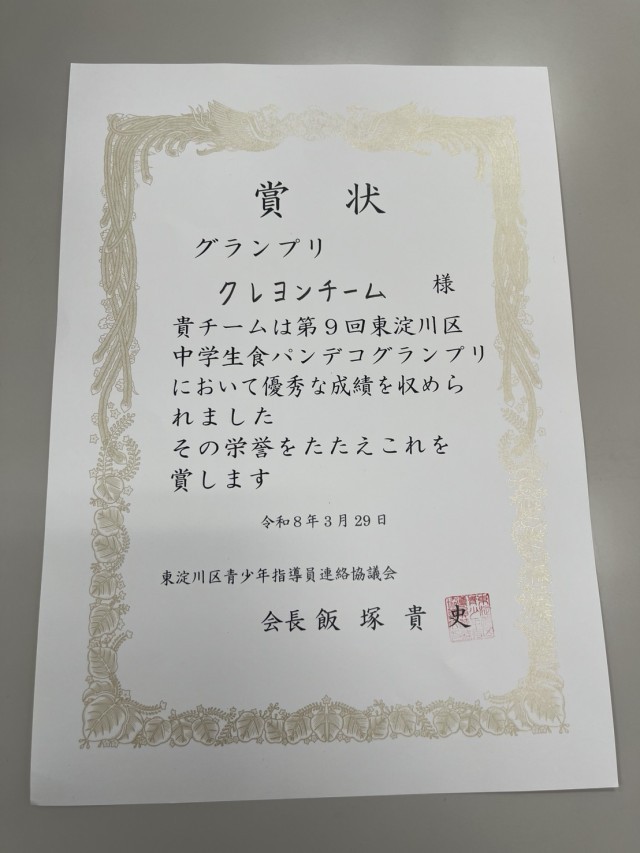 賞 状
グランプリ
クレヨンチーム 様
貴チームは第9回東淀川区
中学生食パンデコグランプリ
において優秀な成績を収めら
れました
その栄誉をたたえこれを
賞します
令和8年3月29日
東淀川区青少年指導員連絡協議会
会長 飯 塚 貴 史